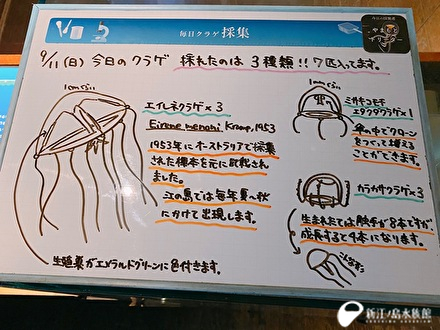 毎日クラゲ採集
9/11(日) 今日のクラゲ 採れたのは 3種類!! 7匹入ってます。
1cmぐらい
エイレネクラゲ×3
Eirene menoni Kramp, 1953
1953年にオーストラリアで採集
された標本を元に記載され
ました。
江の島では毎年夏〜秋
にかけて出現します。
生殖巣がエメラルドグリーンに色付きます。
1mmぐらい
ミサキコモチ
エダクダクラゲ×1
傘の中でクローン
をつくって増える
ことができます。
カラカサクラゲ×3
生まれたては触手が8本ですが、
成長すると4本になります。
こんなカオ
新江ノ島水族館
ENOSHIMA AQUARIUM